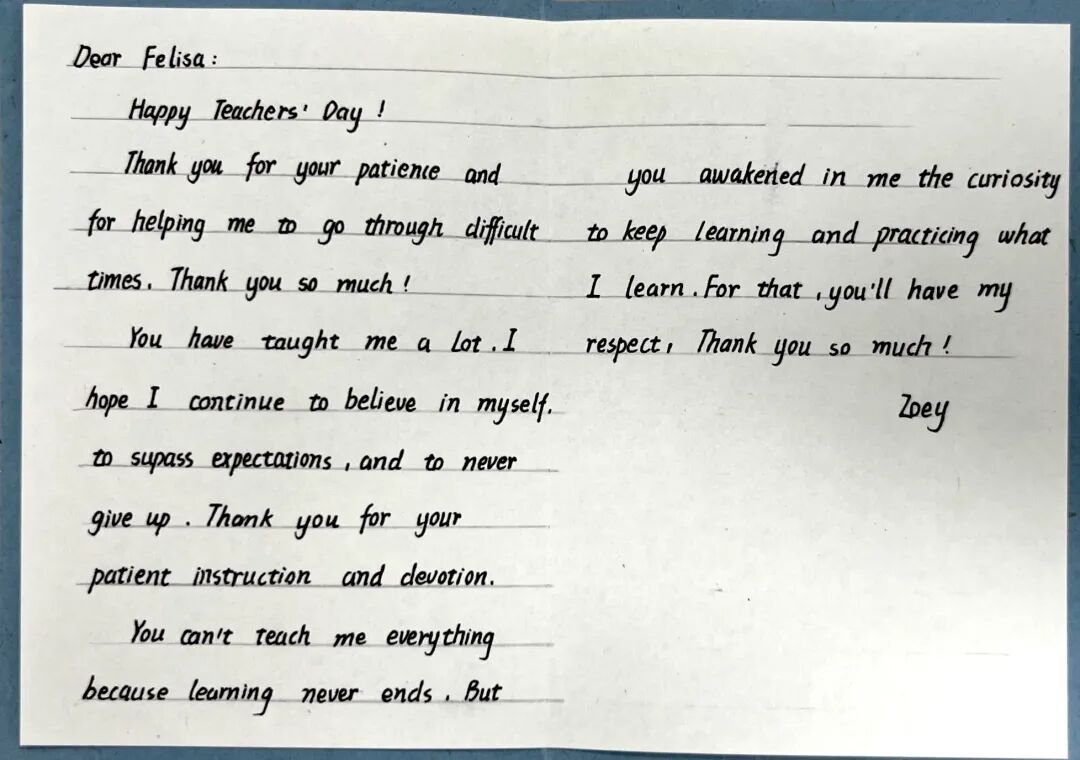 Dear Felisa:
Happy Teachers' Day!
Thank you for your patience and
for helping me to go through difficult
times. Thank you so much!
You have taught me a lot. I
hope I continue to believe in myself.
to supass expectations, and to never
give up. Thank you for your
patient instruction and devotion.
You can't teach me everything
because learning never ends. But
you awakened in me the curiosity
to keep learning and practicing what
I learn. For that, you'll have my
respect, Thank you so much!
Zoey